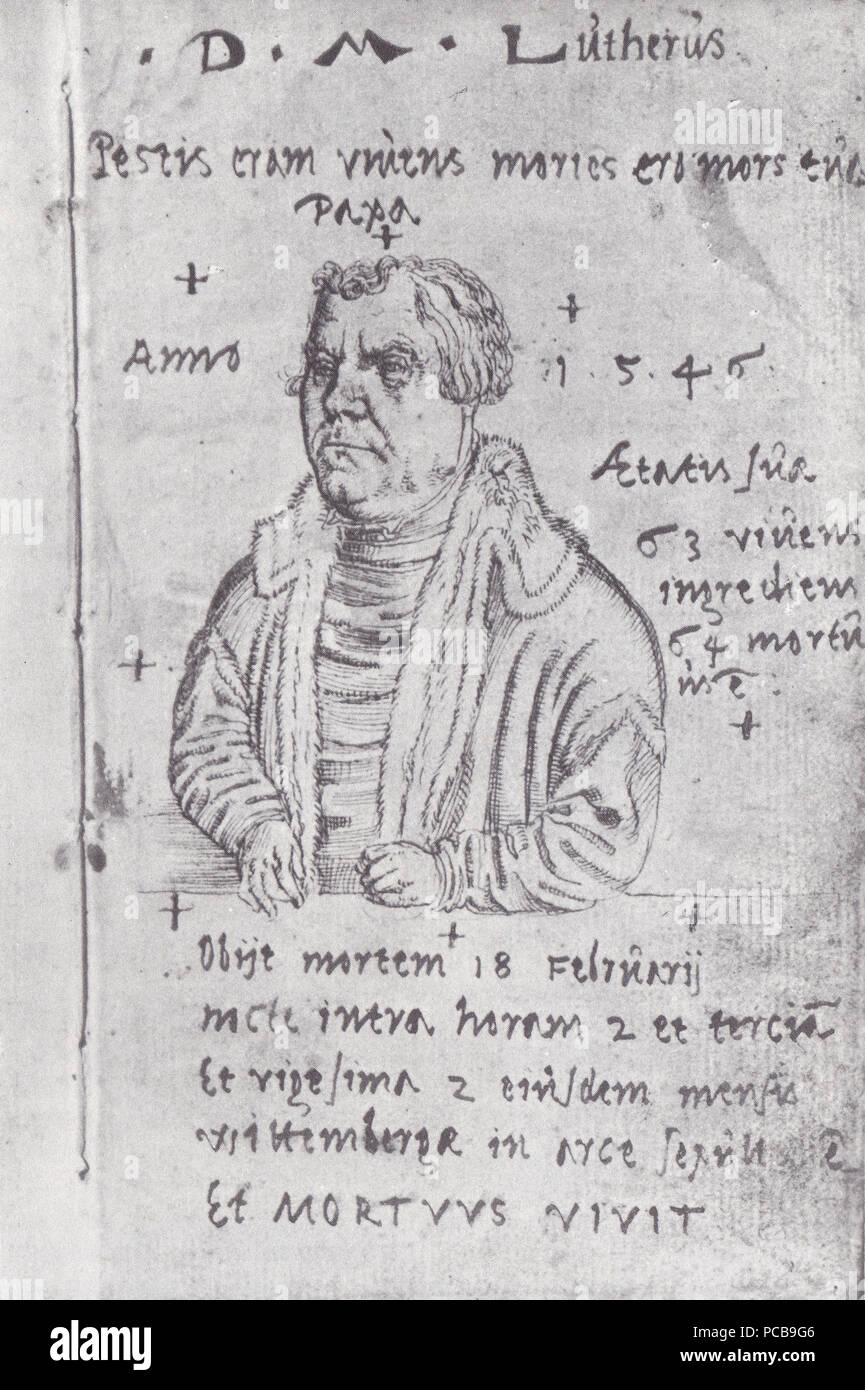 · D · M · Lutherus
Pestis eram vivens moriens ero mors tua
Papa
Anno 1 · 5 · 4 6 ·
Ætatis suæ
63 vivens
ingrediens
64 mortu
us ē .
Obijt mortem 18 Februarij
nocte intra horam 2 et terciā
Et vigesima 2 eiusdem mensis
Wittembergæ in arce sepult ē
Et MORTVVS VIVIT
alamy
Image ID: PCB9G6
www.alamy.com